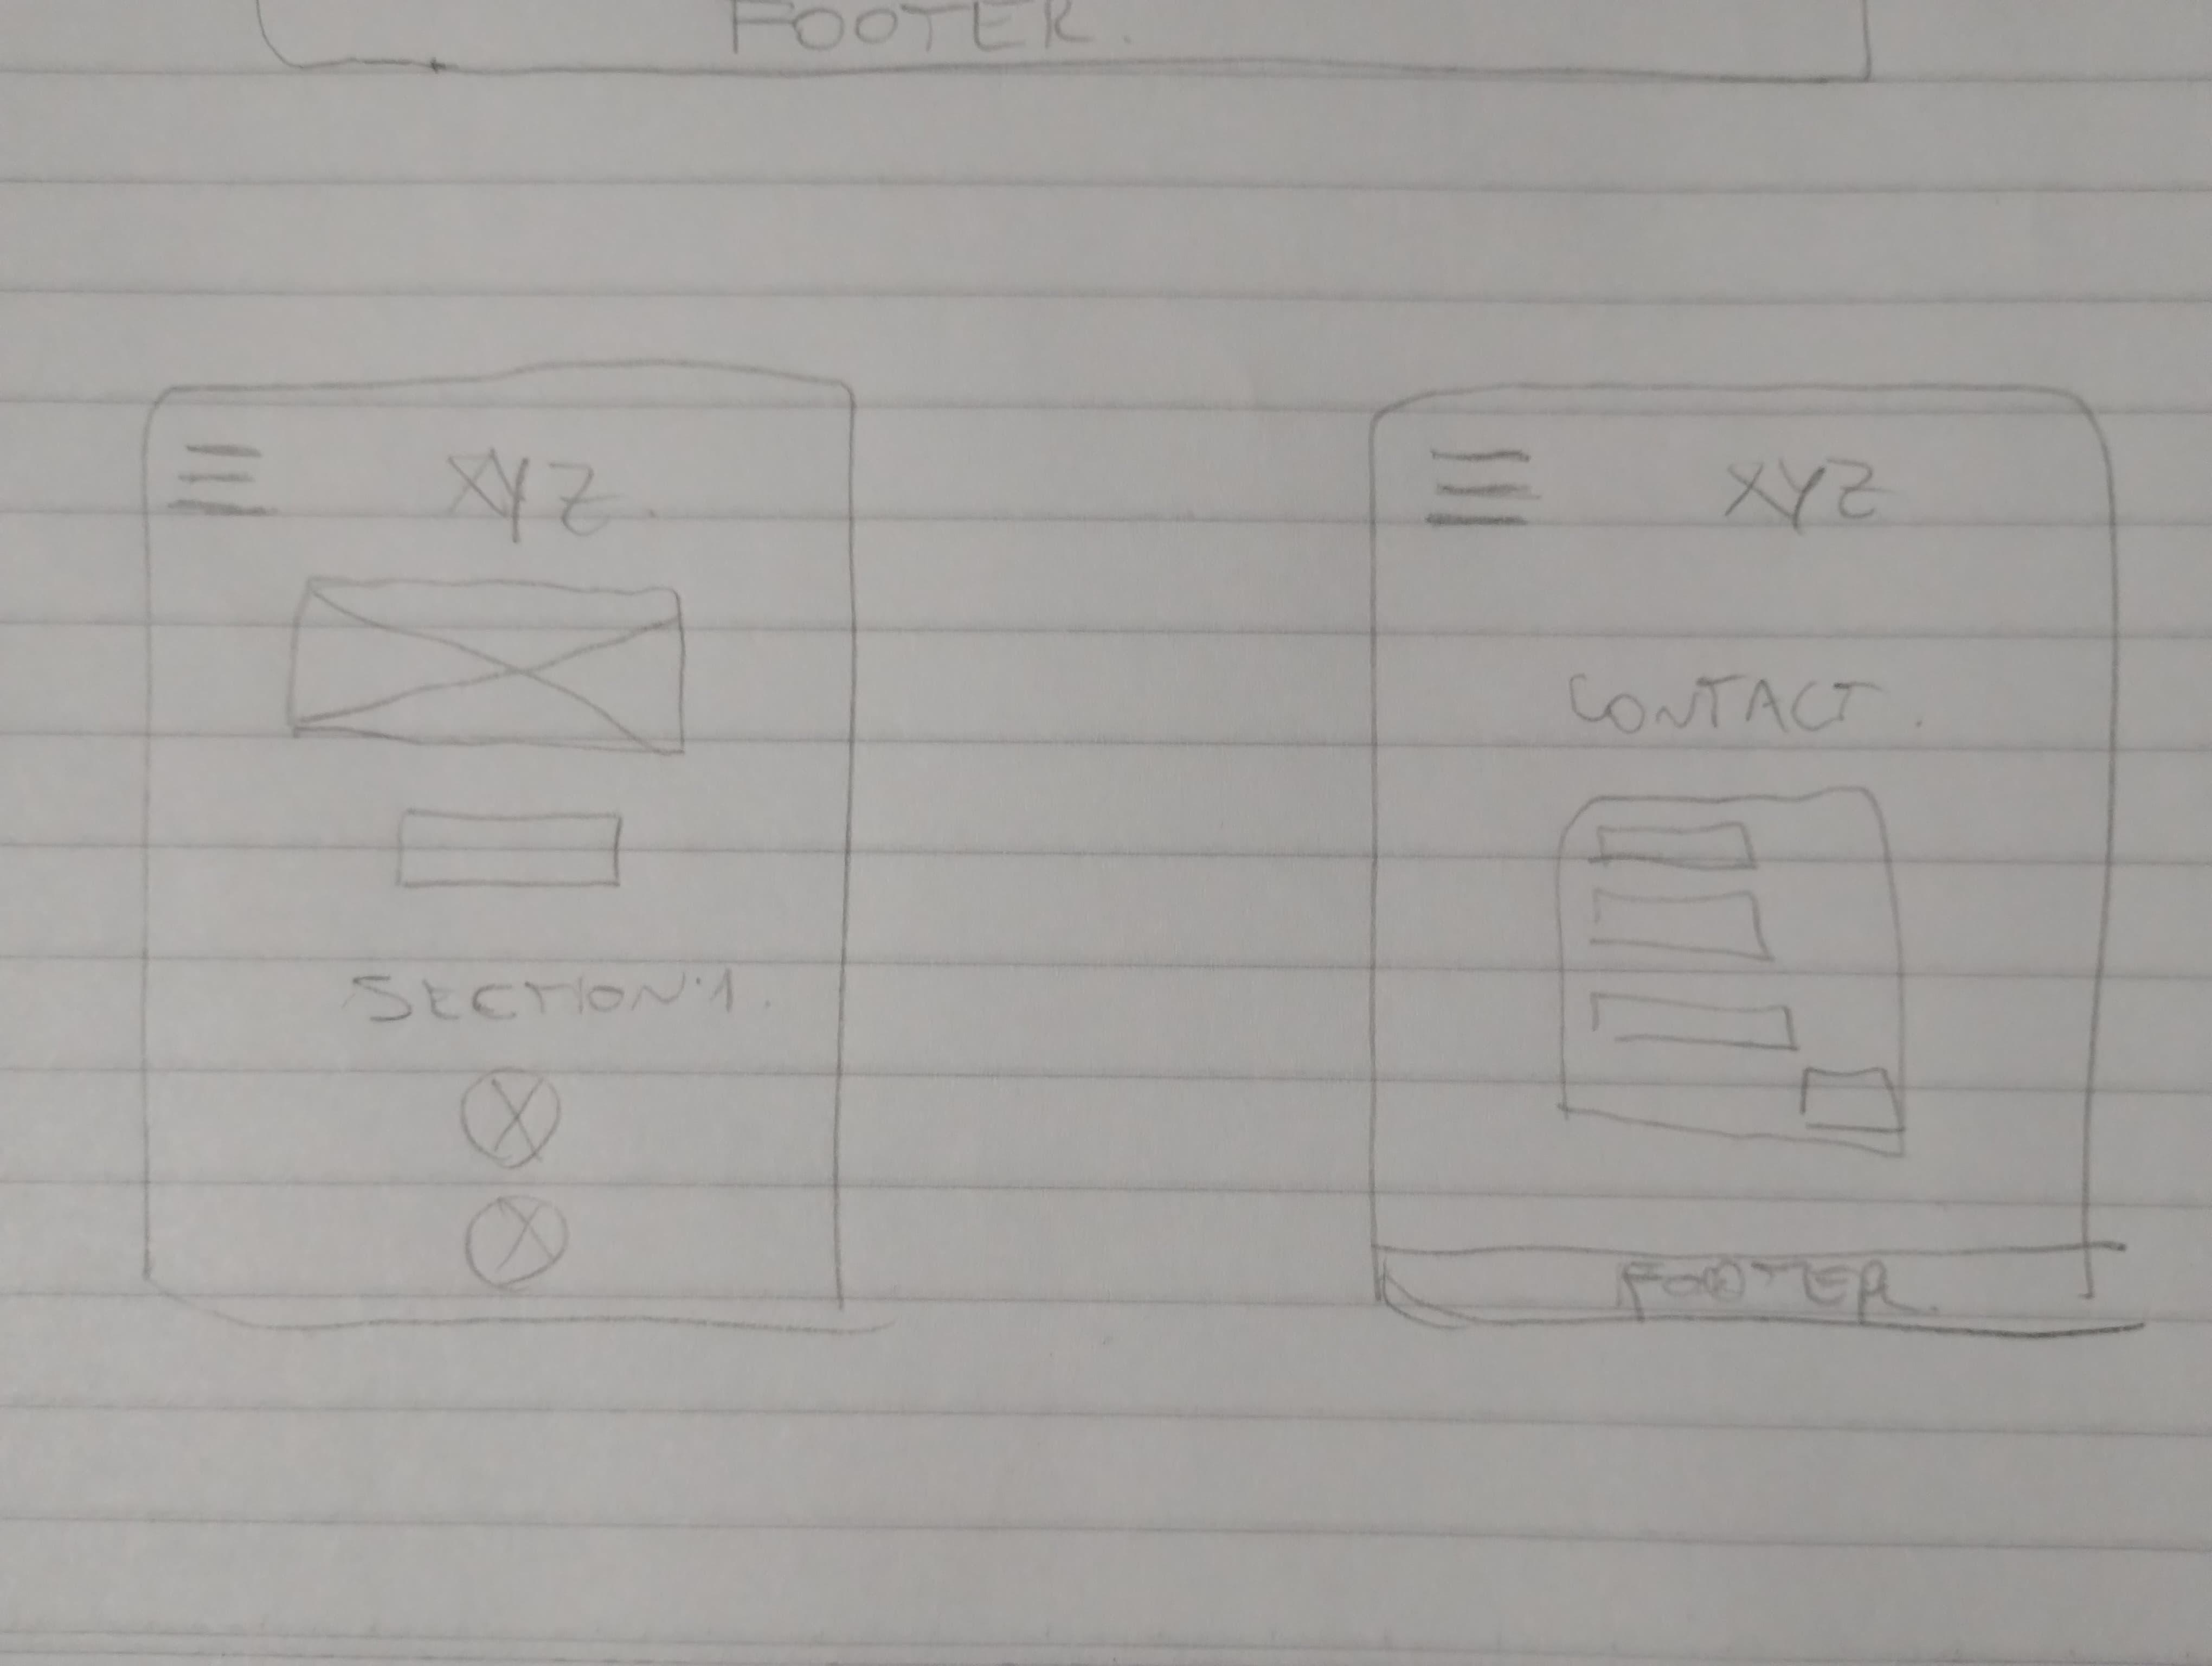 FOOTER.
XYZ.
SECTION 1.
XYZ
CONTACT.
FOOTER.